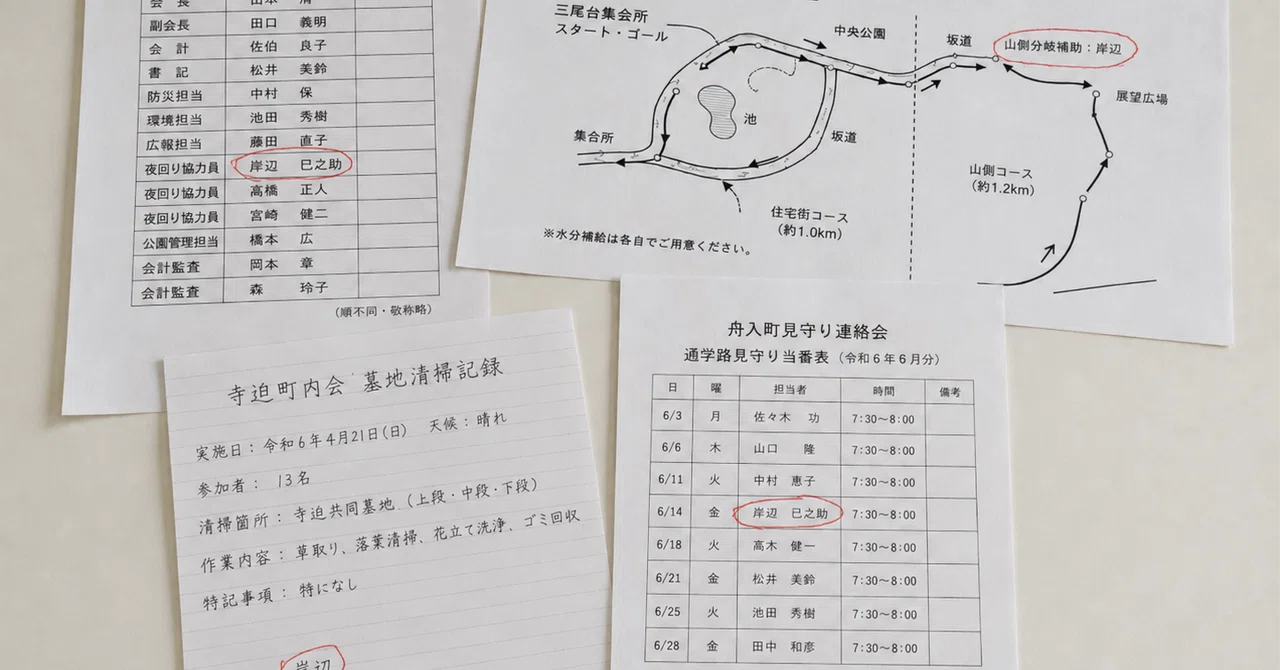 会 長 山本 清
副会長 田口 義明
会 計 佐伯 良子
書 記 松井 美鈴
防災担当 中村 保
環境担当 池田 秀樹
広報担当 藤田 直子
夜回り協力員 岸辺 巳之助
夜回り協力員 高橋 正人
夜回り協力員 宮崎 健二
公園管理担当 橋本 広
会計監査 岡本 章
会計監査 森 玲子
(順不同・敬称略)
三尾台集会所
スタート・ゴール
中央公園
坂道
山側分岐補助:岸辺
展望広場
池
集合所
坂道
山側コース
(約1.2km)
住宅街コース
(約1.0km)
※水分補給は各自でご用意ください。
寺迫町内会 墓地清掃記録
実施日:令和6年4月21日(日) 天候:晴れ
参加者: 13名
清掃箇所:寺迫共同墓地 (上段・中段・下段)
作業内容:草取り、落葉清掃、花立て洗浄、ゴミ回収
特記事項:特になし
岸辺
舟入町見守り連絡会
通学路見守り当番表 (令和6年6月分)
日 曜 担当者 時間 備考
6/3 月 佐々木 功 7:30~8:00
6/6 木 山口 隆 7:30~8:00
6/11 火 中村 恵子 7:30~8:00
6/14 金 岸辺 巳之助 7:30~8:00
6/18 火 高木 健一 7:30~8:00
6/21 金 松井 美鈴 7:30~8:00
6/25 火 池田 秀樹 7:30~8:00
6/28 金 田中 和彦 7:30~8:00